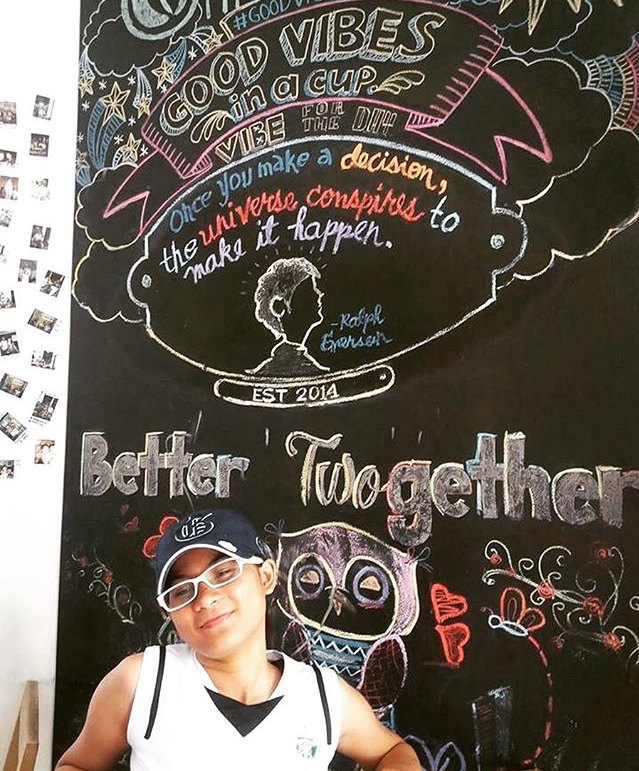 GOOD VIBES
in a cup.
VIBE FOR THE DAY
Once you make a decision,
the universe conspires to
make it happen.
-Ralph
Emerson
EST 2014
Better Twogether